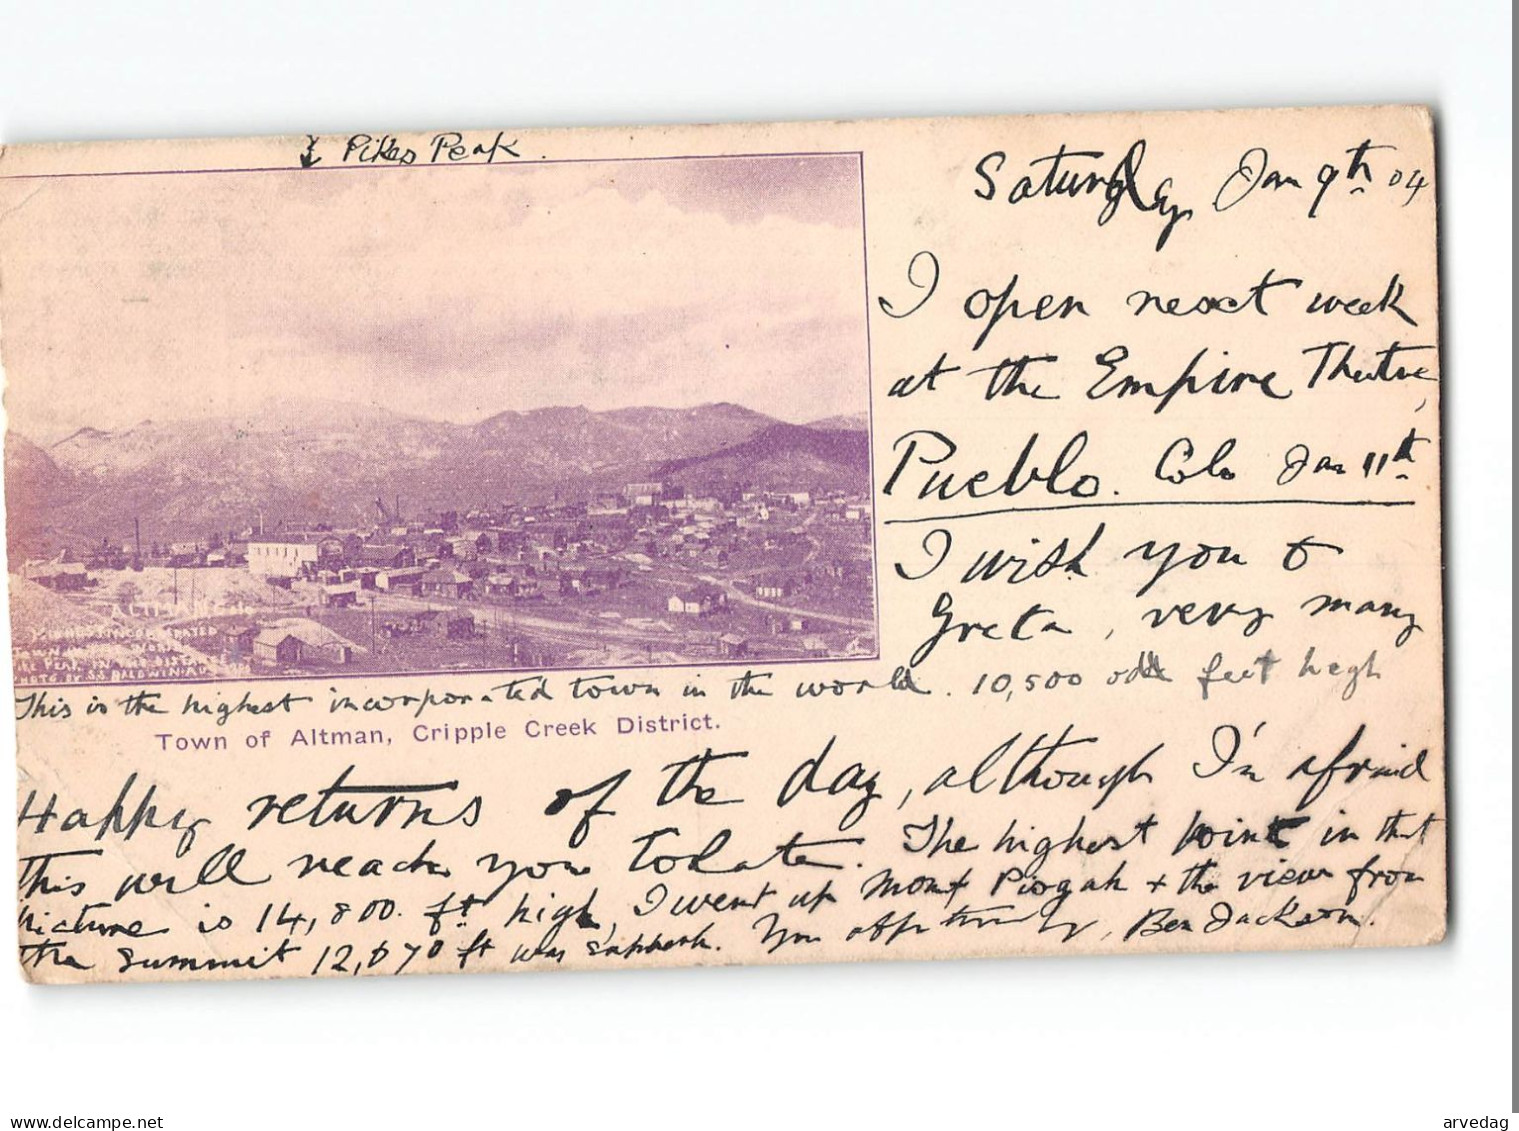 Pikes Peak.
Saturday, Jan 9th 04
I open next week
at the Empire Theatre,
Pueblo. Colo Jan 11th
I wish you &
Greta, very many
ALTMAN COLO
HIGHEST INCORPORATED
TOWN IN THE WORLD
PIKE PEAK IN THE DISTANCE
PHOTO BY S.S. BALDWIN
This is the highest incorporated town in the world. 10,500 odd feet high
Town of Altman, Cripple Creek District.
Happy returns of the day, although I'm afraid
this will reach you to late. The highest point in that
picture is 14,800. ft high, I went up Mont Pisgah + the view from
the summit 12,070 ft was superb. You affectionately, Ben Jackson.
arvedag